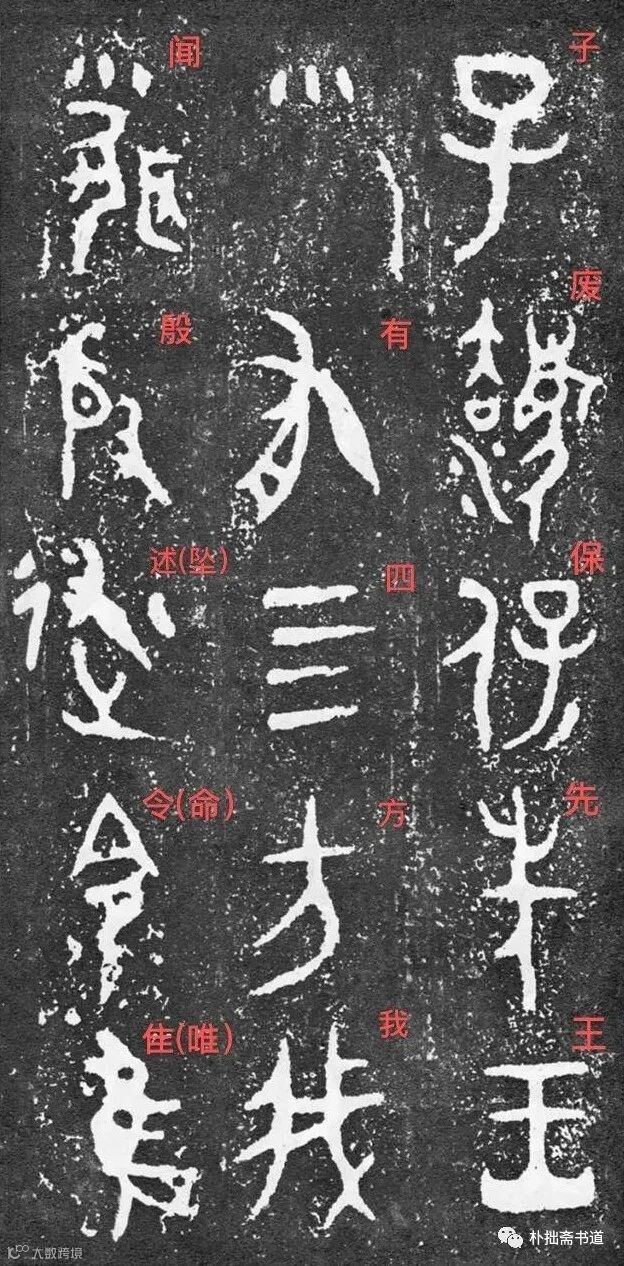 子废保先王
有四方我
闻殷述(坠)令(命)隹(唯)
朴拙斋书道
大数跨境